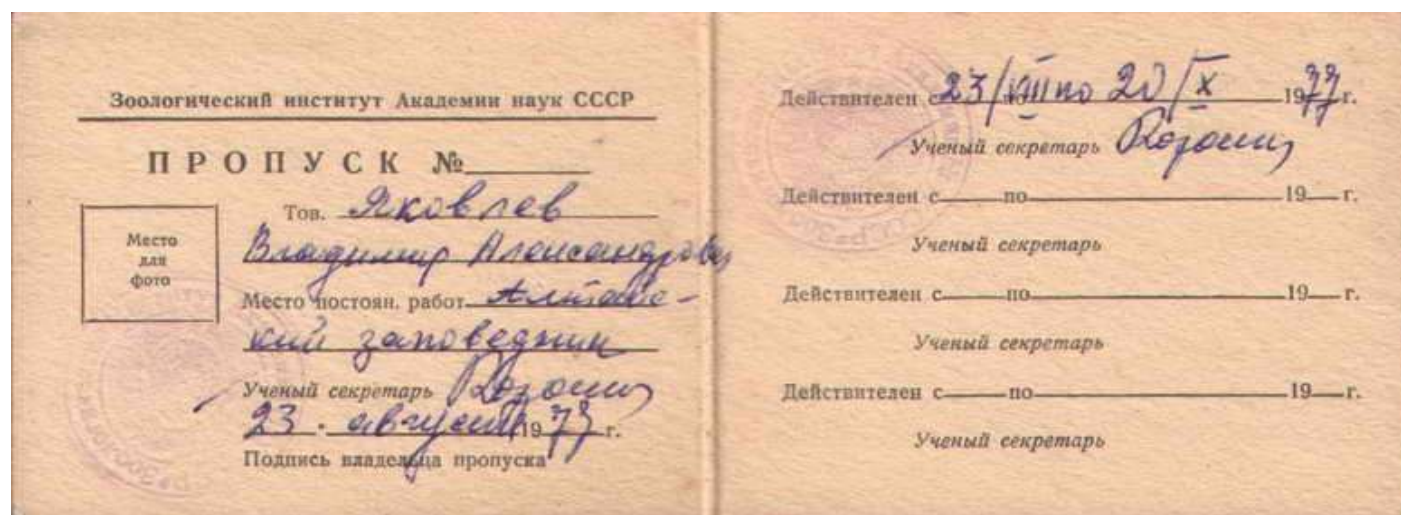 Зоологический институт Академии наук СССР
ПРОПУСК №
Место
для
фото
Тов. Яковлев
Владимир Александрович
Место постоян. работ Алтайс-
кий заповедник
Ученый секретарь
23. августа 1977 г.
Подпись владельца пропуска
Действителен с 23/VIII по 20/X 1977 г.
Ученый секретарь
Действителен с по 19 г.
Ученый секретарь
Действителен с по 19 г.
Ученый секретарь
Действителен с по 19 г.
Ученый секретарь